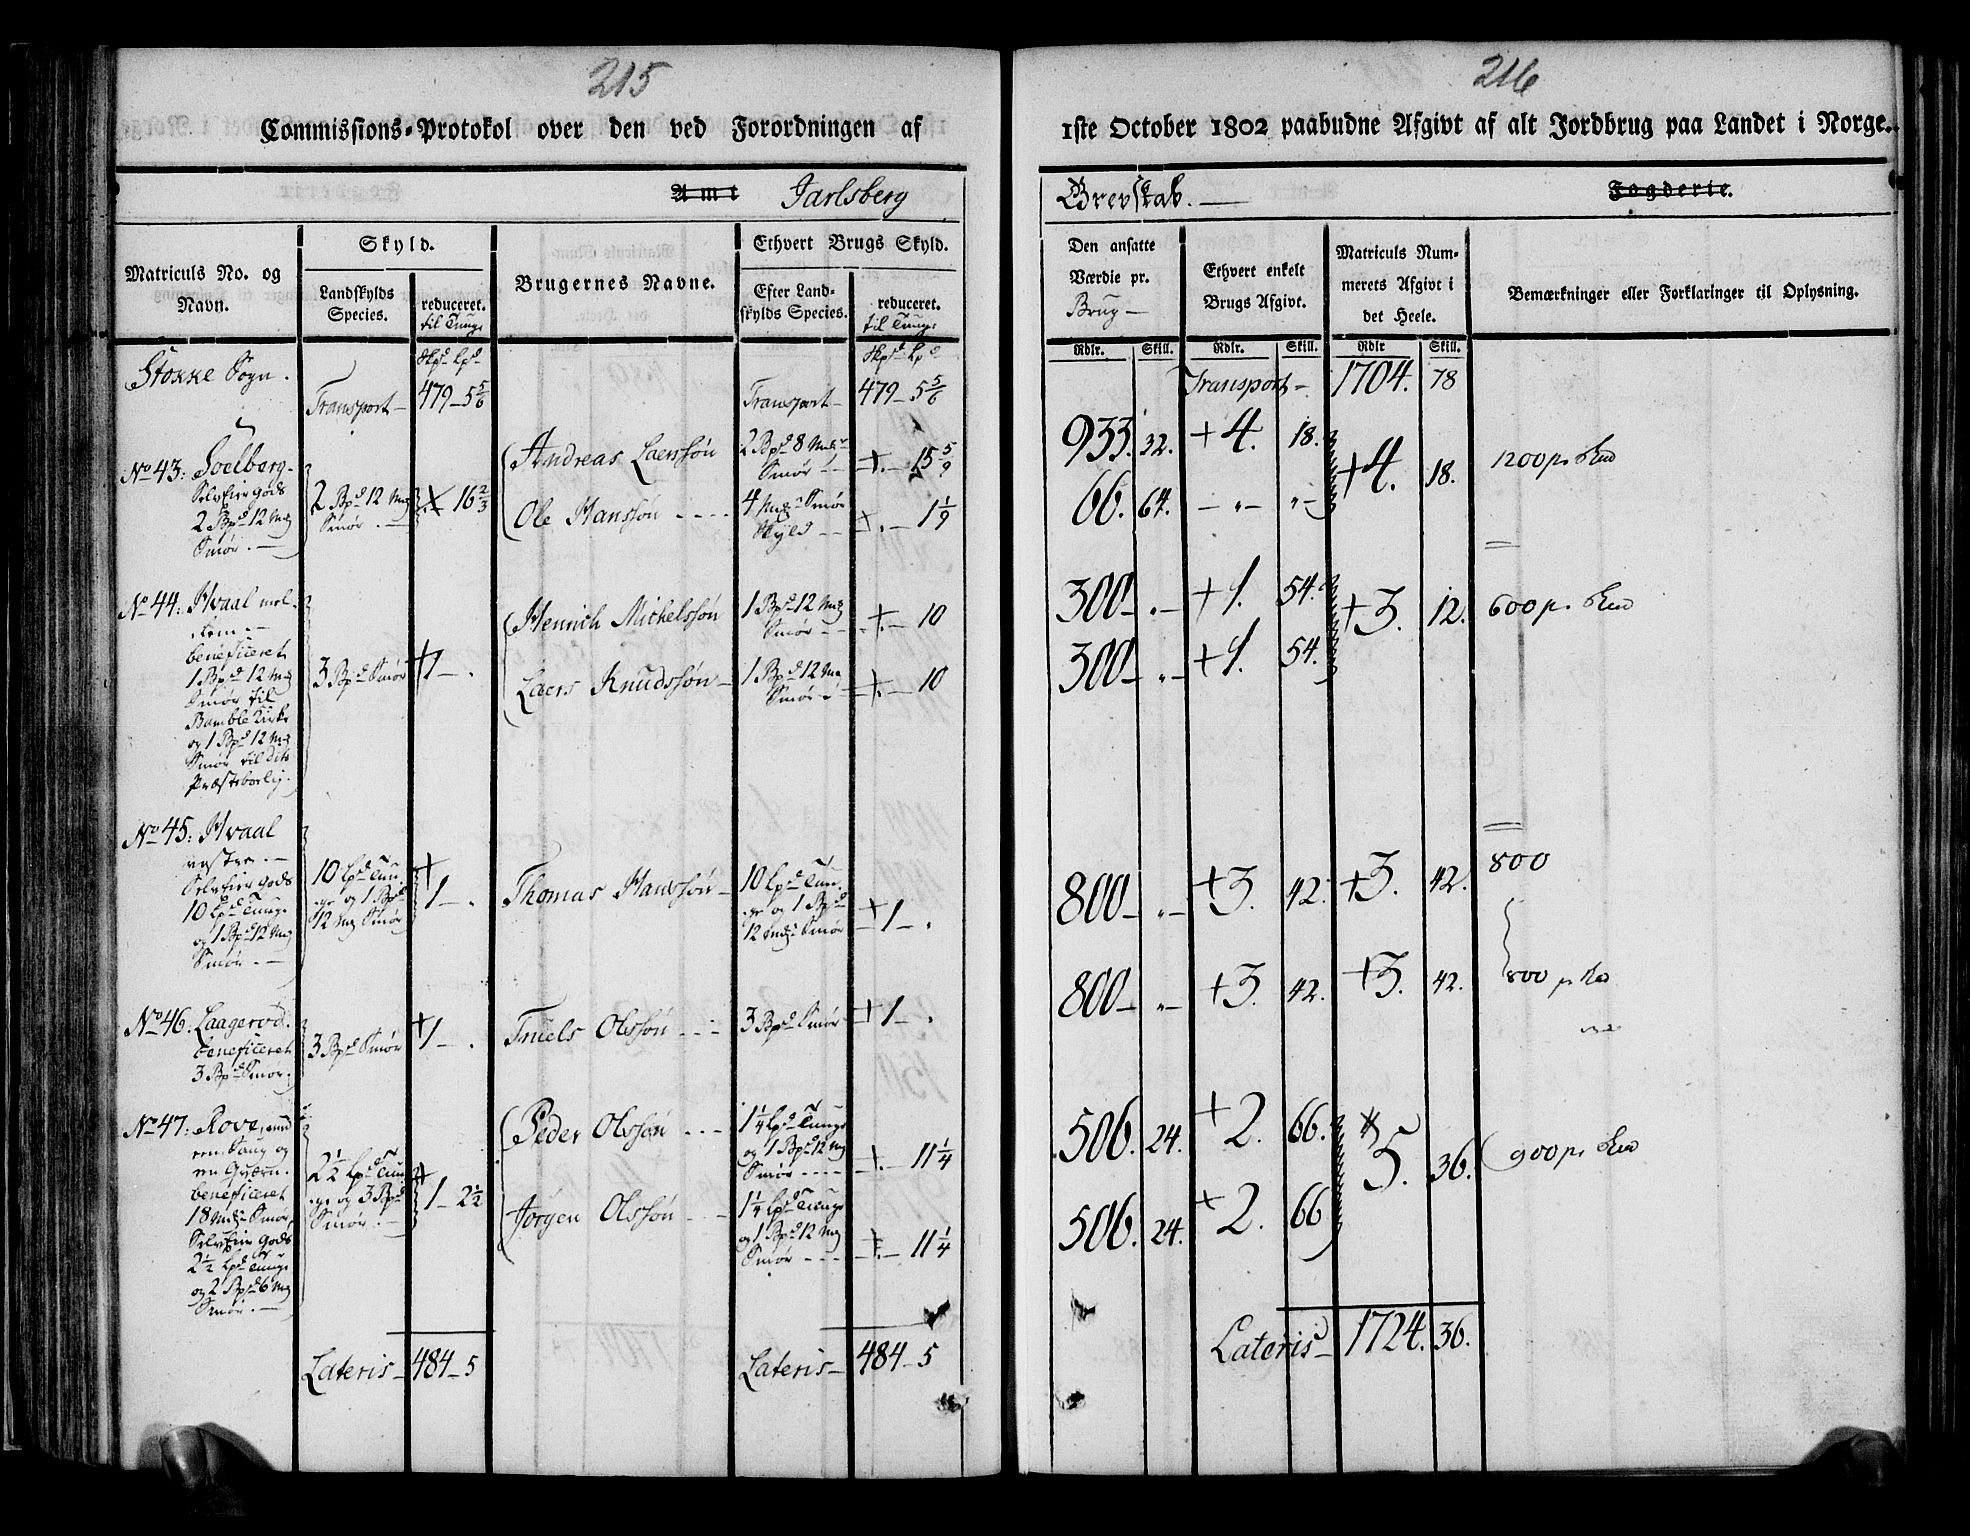 215
Commissions-Protokol over den ved Forordningen af
Amt Jarlsberg
Matriculs No. og
Navn.
Skyld.
Landskylds
Species.
reduceret.
til Tunge
Brugernes Navne.
Ethvert Brugs Skyld.
Efter Land-
skylds Species.
reduceret.
til Tunge
Stokke Sogn.
Skpd Lpd
Transport— 479—5 5/6
Skpd Lpd
Transport— 479—5 5/6
No 43: Soelberg.
Selveier gods
2 Bpd 12 Mrg
Smør.—
2 Bpd 12 Mrg
Smør.—
16 2/3
Andreas Laerssøn
2 Bpd 8 Mrg
Smør
15 5/9
Ole Hanssøn
4 Mrg Smør
Skyld
1 1/9
No 44: Hvaal mel-
lem.—
beneficeret
1 Bpd 12 Mrg
Smør til
Bamble Kirke
og 1 Bpd 12 Mrg
Smør til dito
Præsteboelig.
3 Bpd Smør
+1—.
Henrich Michelssøn
1 Bpd 12 Mrg
Smør
+.— 10
Laers Knudssøn—
1 Bpd 12 Mrg
Smør
+.— 10
No 45: Hvaal
vestre.—
Selveier gods
10 Lpd Tunge
og 1 Bpd 12 Mrg
Smør.—
10 Lpd Tun-
ge og 1 Bpd
12 Mrg Smør
+1—.
Thomas Hanssøn—
10 Lpd Tun-
ge og 1 Bpd
12 Mrg Smør
+1—.
No 46. Laagerød.
beneficeret
3 Bpd Smør.
3 Bpd Smør
+1—.
Truels Olssøn
3 Bpd Smør
+1—.
No 47: Rove, med
een Saug og
en Qværn.
beneficeret
18 Mrg Smør,
Selveier Gods
2 1/2 Lpd Tunge
og 2 Bpd 6 Mrg
Smør.—
2 1/2 Lpd Tun-
ge og 3 Bpd
Smør.—
+1—2 1/2
Peder Olssøn
1 1/4 Lpd Tunge
og 1 Bpd 12 Mrg
Smør
+.— 11 1/4
Jørgen Olssøn
1 1/4 Lpd Tunge
og 1 Bpd 12 Mrg
Smør
+.— 11 1/4
Lateris— 484—5
Lateris— 484—5
216
1ste October 1802 paabudne Afgivt af alt Jordbrug paa Landet i Norge.
Grevskab.— Fogderie.
Den ansatte
Værdie pr.
Brug—
Ethvert enkelt
Brugs Afgivt.
Matriculs Num-
merets Afgivt i
det Heele.
Bemærkninger eller Forklaringer til Oplysning.
Rdlr. Skill. Rdlr. Skill. Rdlr Skill.
Transport— 1704. 78
933. 32. +4. 18. +4. 18.
66. 64. — „— „—
300—„— +1. 54. +3. 12. 600
300—„— +1. 54.
800—„— +3. 42. +3. 42. 800
800—„— +3. 42. +3. 42. 800
506. 24. +2. 66. 5. 36. 900
506. 24. +2. 66
Lateris— 1724. 36.